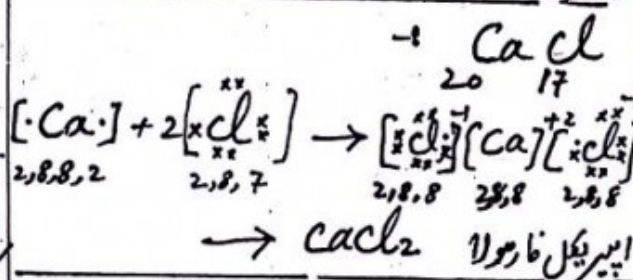 -1 Ca Cl
20 17
[·Ca·] + 2[×Cl×] → [×Cl×]⁻¹ [Ca]⁺² [×Cl×]⁻
2,8,8,2 2,8,7 2,8,8 2,8,8 2,8,8
→ CaCl₂ ایمپریکل فارمولا